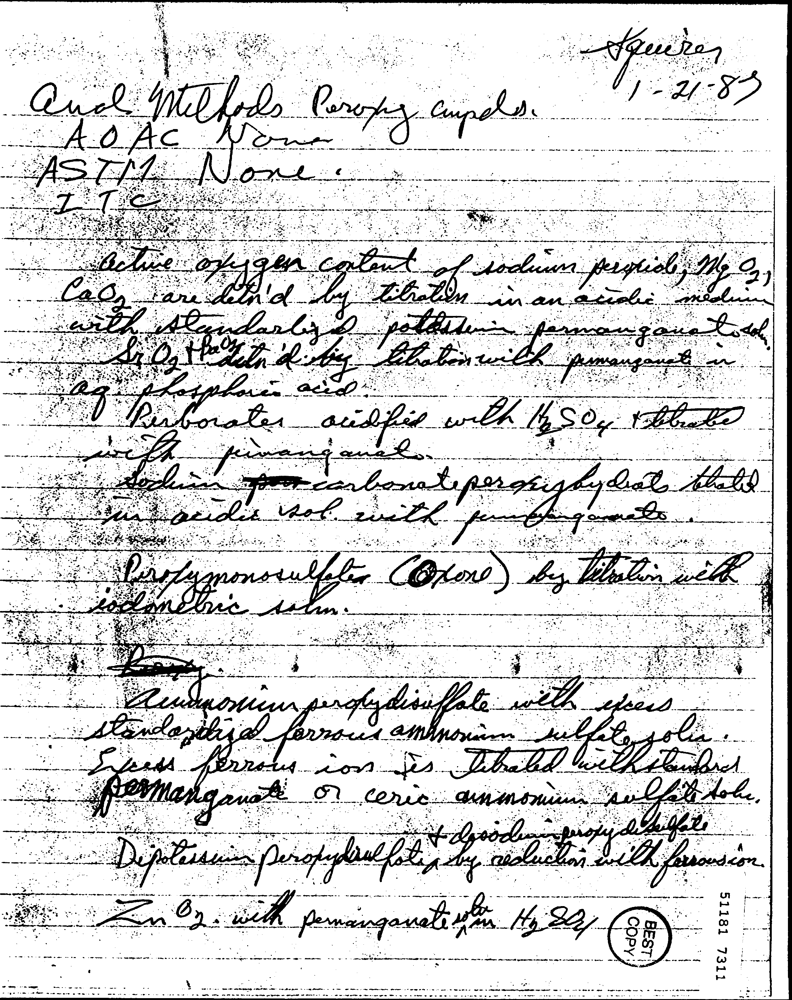 Squires
1-21-83
Anal Methods Peroxy cmpds.
AOAC None
ASTM None.
ITC
Active oxygen content of sodium peroxide, MgO2,
CaO2 are detn'd by titration in an acidic medium
with standardized potassium permanganate soln.
SrO2 + BaO2 detn'd by titration with permanganate in
aq. phosphoric acid.
Perborates acidified with H2SO4 + titrated
with permanganate.
Sodium carbonate peroxyhydrate titrated
in acidic sol. with permanganate.
Peroxymonosulfates (Oxone) by titration with
iodometric soln.
Ammonium peroxydisulfate with excess
standardized ferrous ammonium sulfate soln.
Excess ferrous ion is titrated with standard
permanganate or ceric ammonium sulfate soln.
+ disodium peroxydisulfate
Dipotassium peroxydisulfate, by reduction with ferrous ion.
ZnO2. with permanganate soln in H2SO4
BEST
COPY
51181 7311